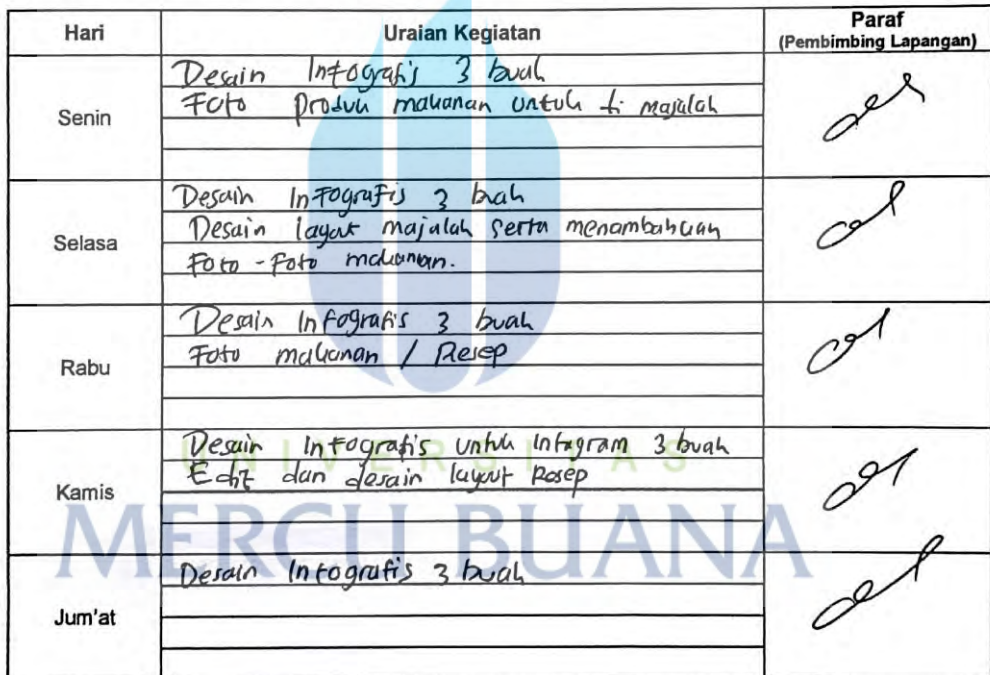 Hari Uraian Kegiatan Paraf
(Pembimbing Lapangan)
Senin
Desain Infografis 3 buah
Foto produk makanan untuk di majalah
Selasa
Desain Infografis 3 buah
Desain layout majalah serta menambahkan
Foto - Foto makanan.
Rabu
Desain Infografis 3 buah
Foto makanan / Resep
Kamis
Desain Infografis untuk Intagram 3 buah
Edit dan desain layout Resep
Jum'at
Desain Infografis 3 buah
UNIVERSITAS
MERCU BUANA